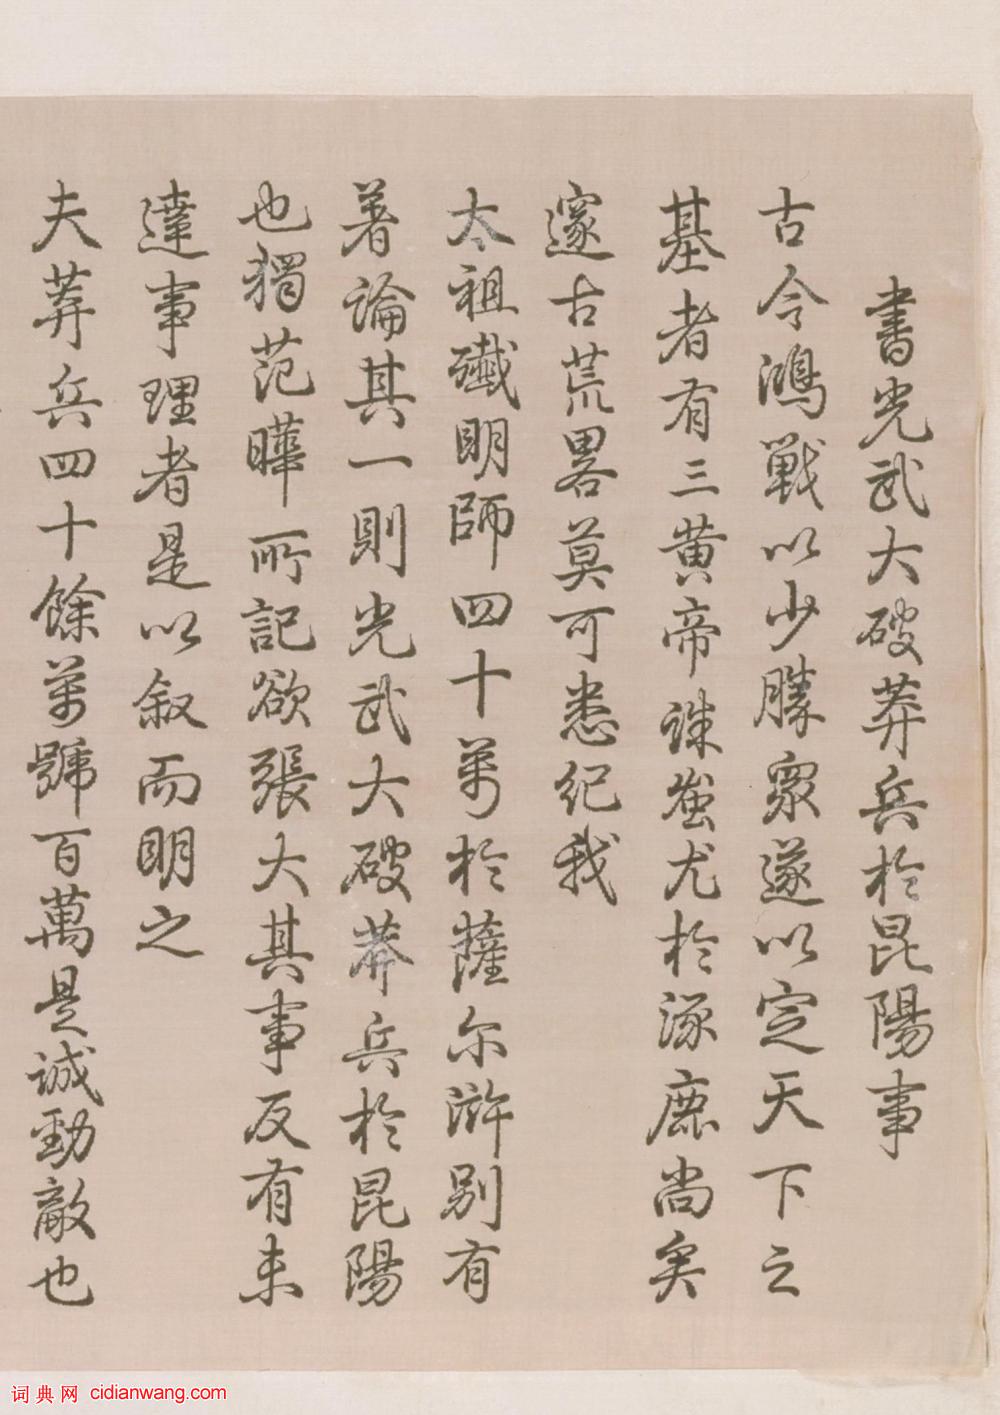 書光武大破莽兵於昆陽事
古今鴻戰以少勝衆遂以定天下之
基者有三黄帝誅蚩尤於涿鹿尚矣
邃古荒畧莫可悉紀我
太祖殲明師四十萬於薩尔滸別有
著論其一則光武大破莽兵於昆陽
也獨范曄所記欲張大其事反有未
達事理者是以叙而明之
夫莽兵四十餘萬號百萬是誠勁敵也
词典网 cidianwang.com